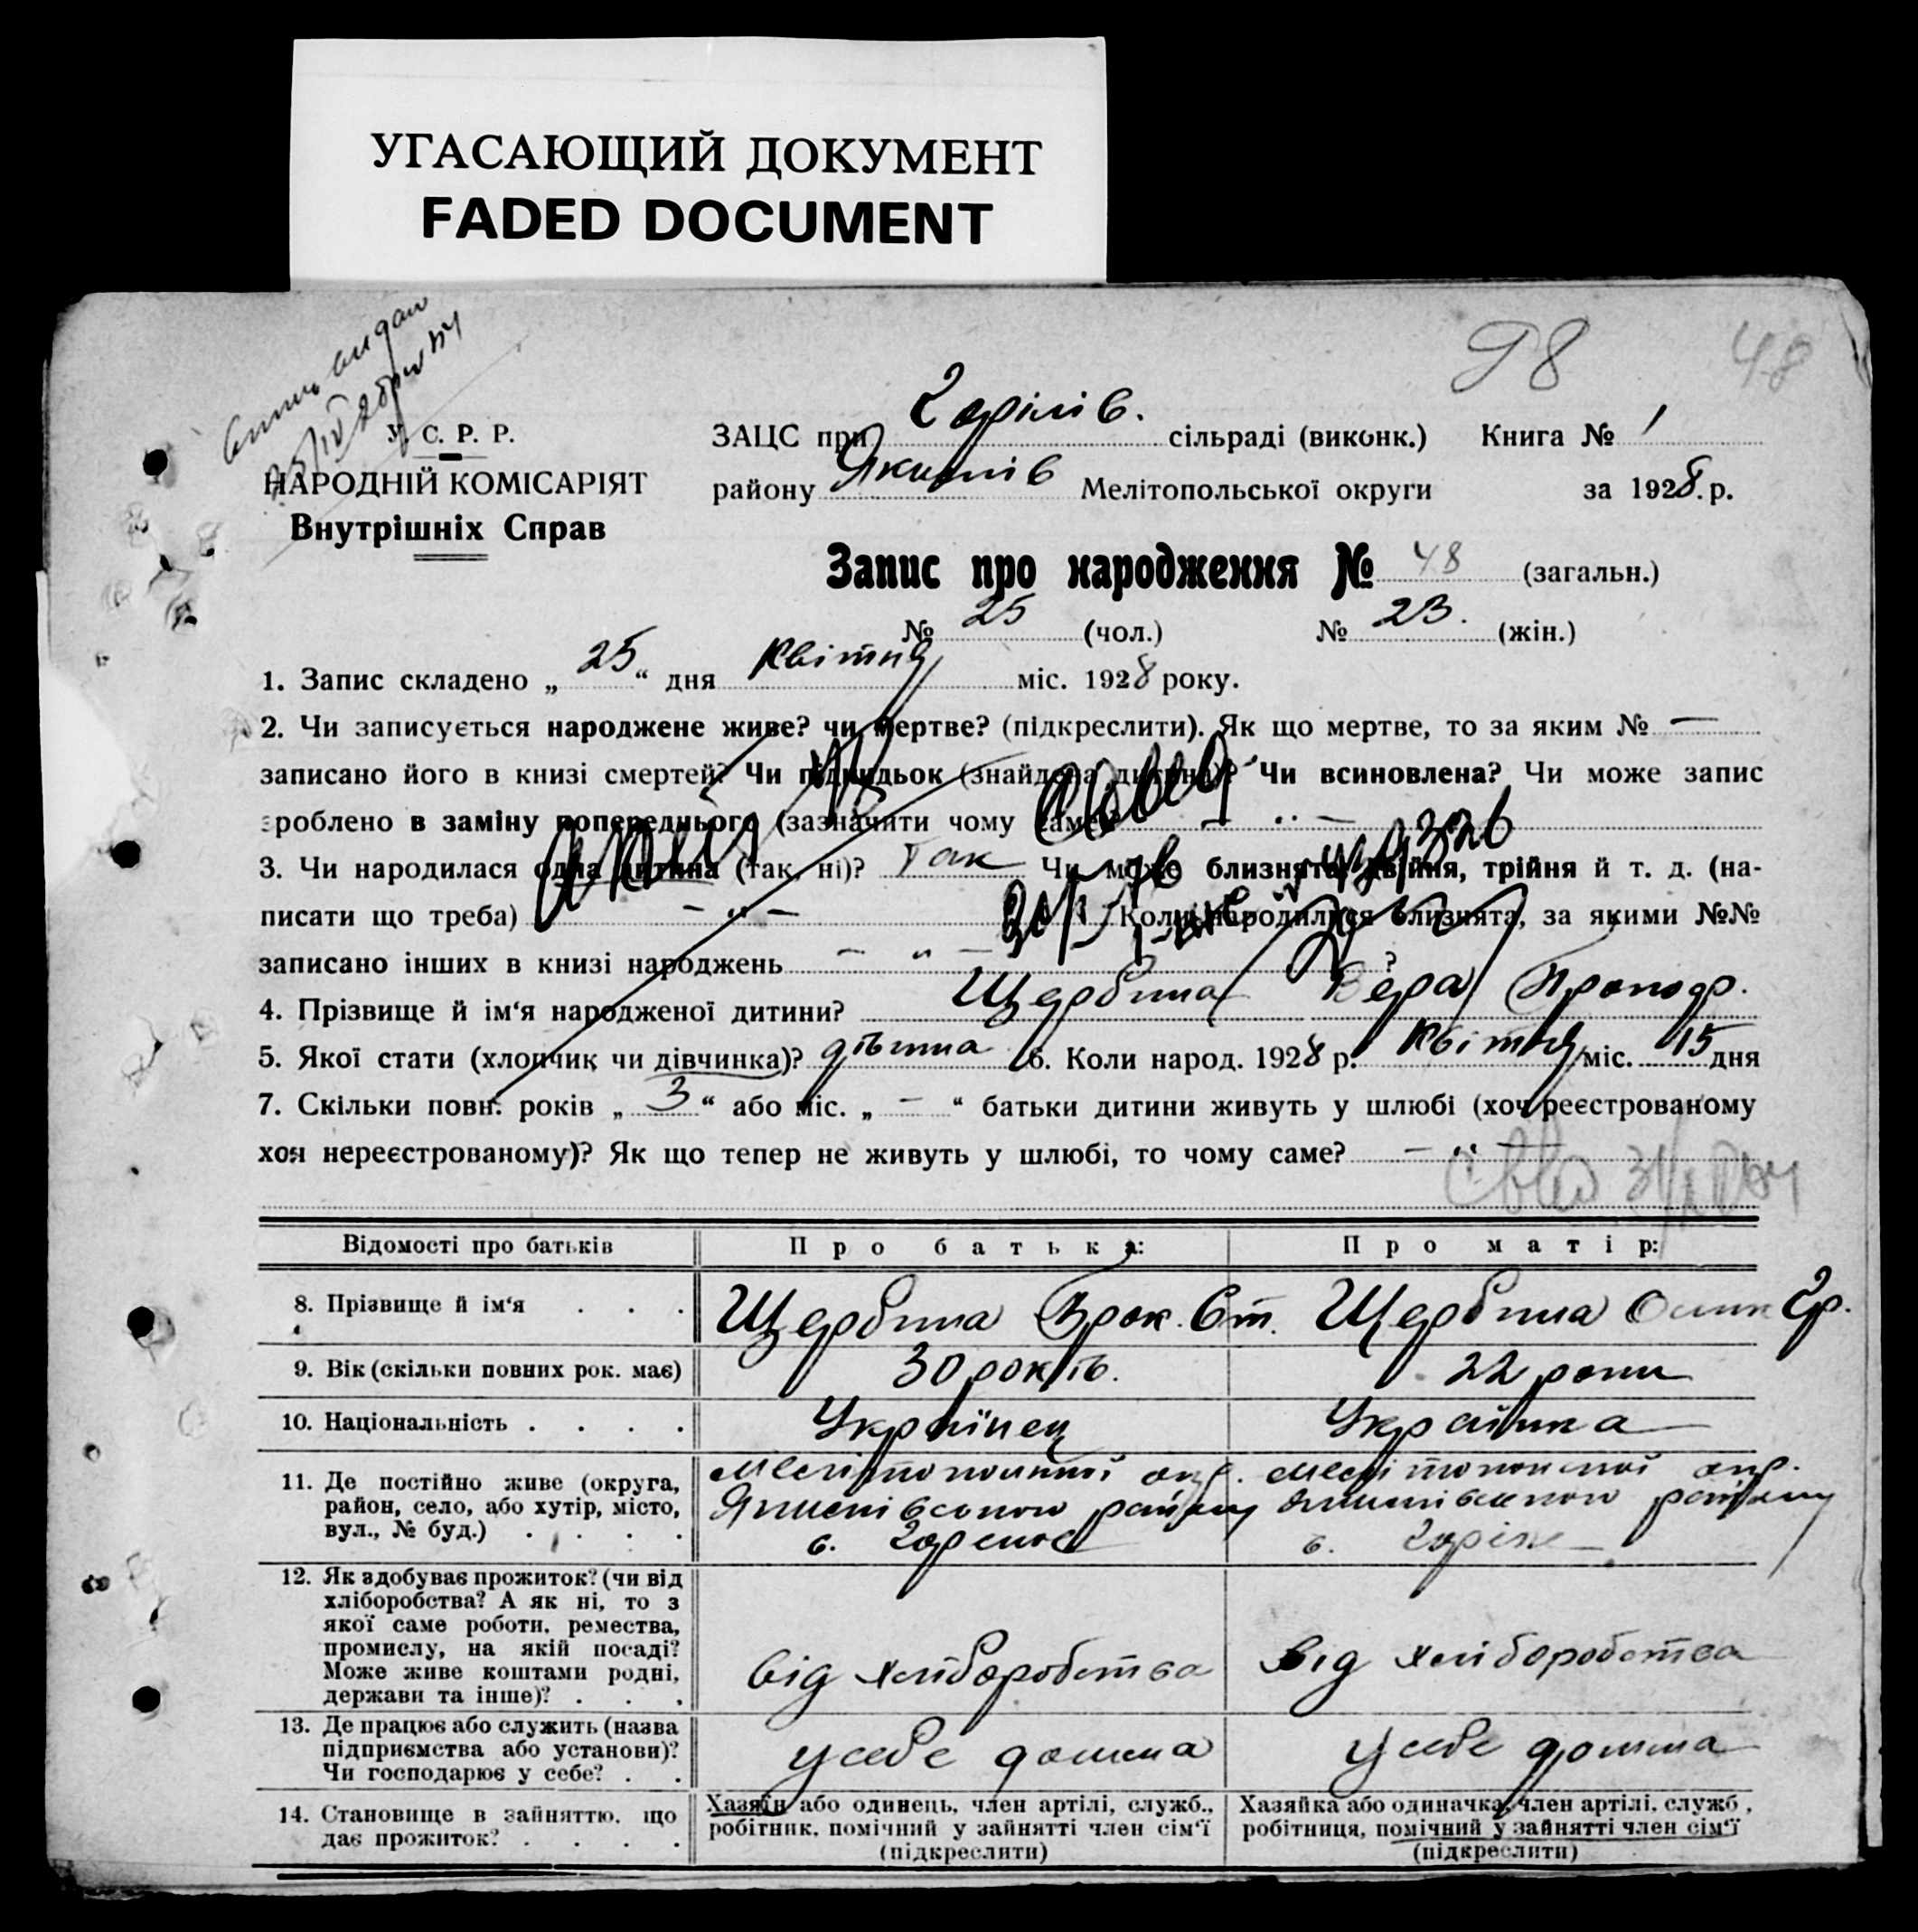 УГАСАЮЩИЙ ДОКУМЕНТ
FADED DOCUMENT
98 48
У. С. Р. Р.
НАРОДНІЙ КОМІСАРІЯТ
Внутрішніх Справ
ЗАЦС при Горілів. сільраді (виконк.) Книга № 1
району Якимів Мелітопольської округи за 1928 р.
Запис про народження № 48 (загальн.)
№ 25 (чол.) № 23. (жін.)
1. Запис складено „ 25 “ дня Квітня міс. 1928 року.
2. Чи записується народжене живе? чи мертве? (підкреслити). Як що мертве, то за яким № —
записано його в книзі смертей? Чи підкидьок (знайдена дитина)? Чи всиновлена? Чи може запис
зроблено в заміну попереднього (зазначити чому саме)? — „ —
3. Чи народилася одна дитина (так, ні)? Так Чи може близнята, двійня, трійня й т. д. (на-
писати що треба) — „ — Коли народилися близнята, за якими №№
записано інших в книзі народжень — „ — ?
4. Прізвище й ім‘я народженої дитини? Щербина Вера
5. Якої стати (хлопчик чи дівчинка)? дівчина 6. Коли народ. 1928 р. Квітня міс. 15 дня
7. Скільки повн. років „ 3 “ або міс. „ — “ батьки дитини живуть у шлюбі (хоч реєстрованому
хоч нереєстрованому)? Як що тепер не живуть у шлюбі, то чому саме? — „ —
Відомості про батьків Про батька: Про матір:
8. Прізвище й ім‘я . . . Щербина Ст. Щербина Гр.
9. Вік (скільки повних рок. має) 30 років. 22 роки
10. Національність . . . . Українец Українка
11. Де постійно живе (округа,
район, село, або хутір, місто,
вул., № буд.) . . . .
Мелітопольської окр. Мелітопольської окр.
Якимівського району Якимівського району
с. Горелое с. Горіле
12. Як здобуває прожиток? (чи від
хліборобства? А як ні, то з
якої саме роботи, ремества,
промислу, на якій посаді?
Може живе коштами родні,
держави та інше)? . . .
від хліборобства від хліборобства
13. Де працює або служить (назва
підприємства або установи)?
Чи господарює у себе? . .
у себе дома у себе дома
14. Становище в зайняттю, що
дає прожиток? . . . .
Хазяїн або одинець, член артілі, служб.,
робітник, помічний у зайнятті член сім‘ї
(підкреслити)
Хазяйка або одиначка, член артілі, служб.,
робітниця, помічний у зайнятті член сім‘ї
(підкреслити)